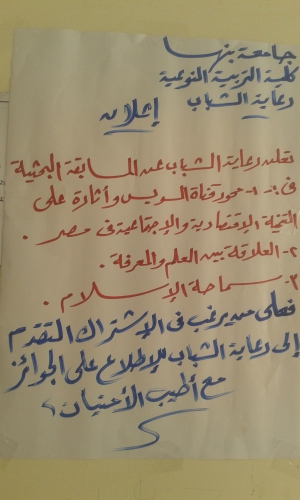 جامعة بنها
كلية التربية النوعية
رعاية الشباب
إعلان
تعلن رعاية الشباب عن المسابقة البحثية
فى :- ١- محور قناة السويس وأثارة على
التنمية الإقتصادية والإجتماعية فى مصر .
٢- العلاقة بين العلم والمعرفة .
٣- سماحة الإسلام .
فعلى من يرغب فى الإشتراك التقدم
إلى رعاية الشباب للإطلاع على الجوائز
مع أطيب الأمنيات